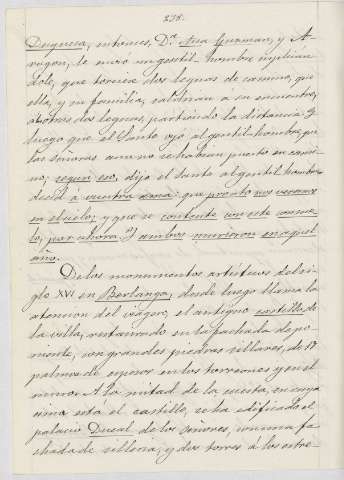 238.
Duquesa, entonces, D.ª Ana Guzman, y A-
ragon, le envió un gentil-hombre suplicán
dole, que torciera dos leguas de camino, que
ella, y su familia, saldrian á su encuentro,
otras dos leguas, partiendo la distancia: Y
luego que el Santo oyó al gentil-hombre, que
las Señoras aun no se habian puesto en cami-
no; segun eso, dijo el Santo al gentil hombre
decid á vuestra ama: que pronto nos veremos
en el cielo; y que se contente con este consue-
lo, por ahora. Y ambos murieron en aquel
año.
De los monumentos artísticos del si-
glo XVI en Berlanga, desde luego llama la
atencion del viagero, el antiguo castillo de
la villa, restaurado en la fachada de po-
niente, con grandes piedras sillares, de 17
palmos de espesor en los torreones y en el
muro. A la mitad de la cuesta, en cuya
cima está el castillo, se ha edificado el
palacio Ducal de los Señores, con una fa-
chada de silleria, y dos torres á los estre-